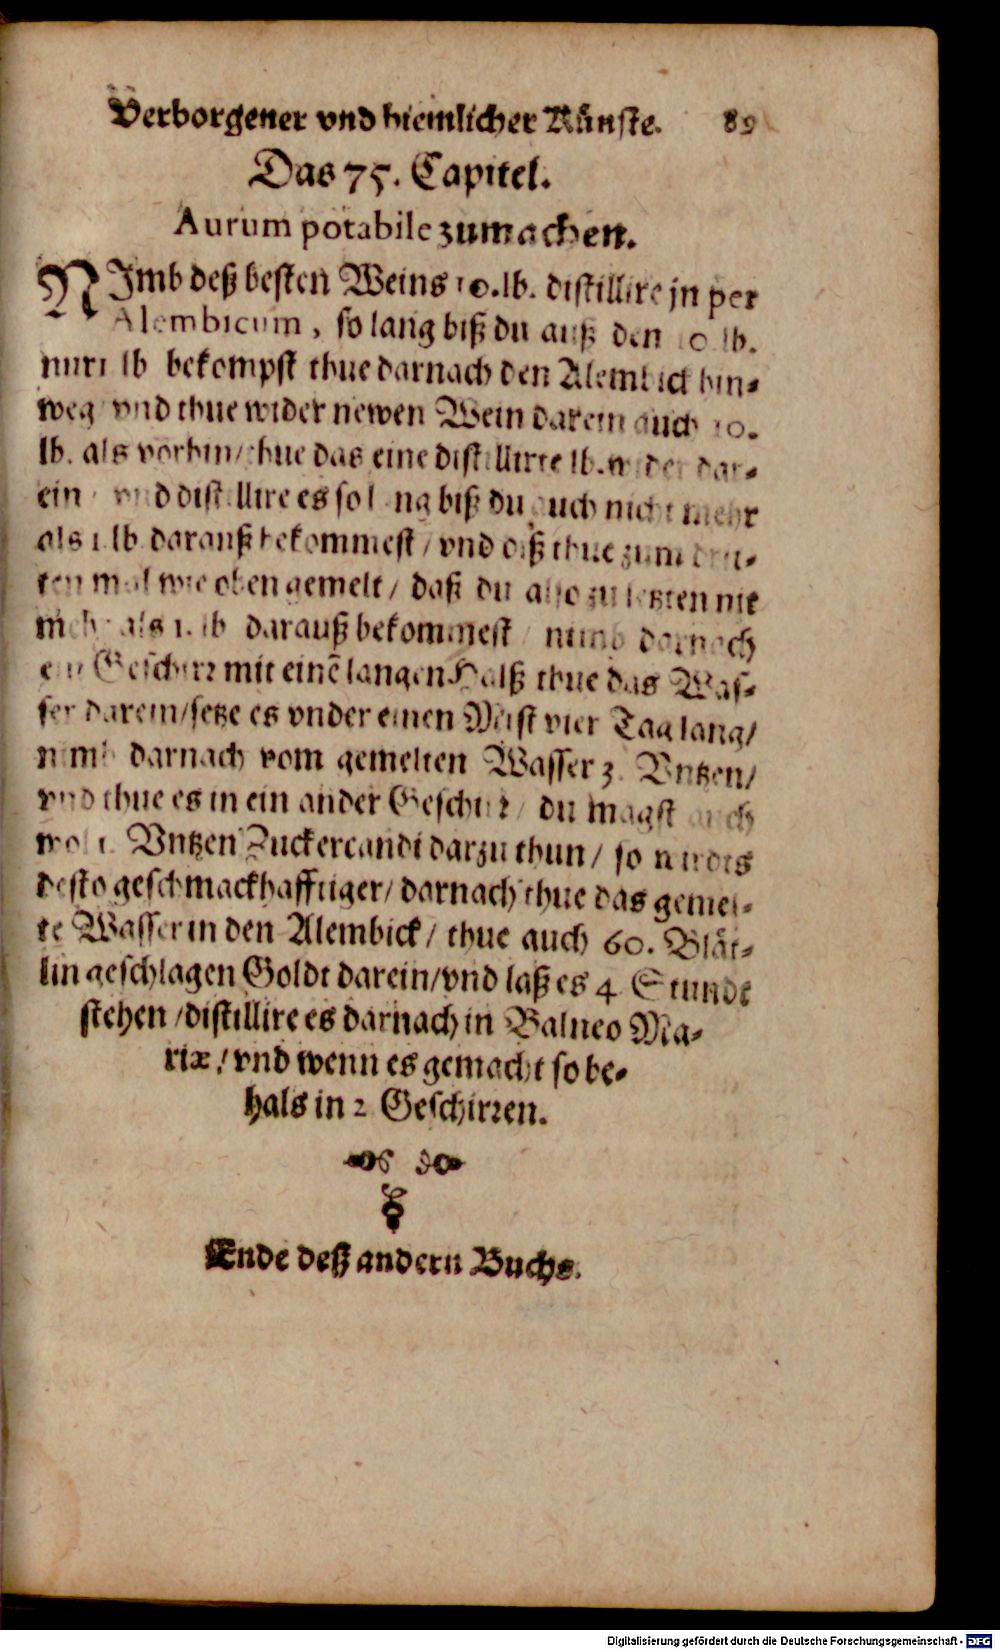 Verborgener vnd hiemlicher Künste. 89
Das 75. Capitel.
Aurum potabile zumachen.
NImb deß besten Weins 10.lb. distillire jn per
Alembicum, so lang biß du auß den 10 lb.
nur 1 lb bekompst thue darnach den Alembick hin-
weg vnd thue wider newen Wein darein auch 10.
lb. als vorhin/thue das eine distillirte lb. wider dar-
ein / vnd distillire es so lang biß du auch nicht mehr
als 1 lb darauß bekommest / vnd diß thue zum drit-
ten mal wie oben gemelt / daß du also zu letzten nit
mehr als 1. lb darauß bekommest / nimb darnach
ein Geschirr mit einē langen Halß thue das Was-
ser darein/setze es vnder einen Mist vier Tag lang/
nimb darnach vom gemelten Wasser 3. Vntzen/
vnd thue es in ein ander Geschirr / du magst auch
wol 1. Vntzen Zuckercandi darzu thun / so wirdts
desto geschmackhafftiger/ darnach thue das gemel-
te Wasser in den Alembick / thue auch 60. Blät-
lin geschlagen Goldt darein/vnd laß es 4 Stundt
stehen /distillire es darnach in Balneo Ma-
riæ / vnd wenn es gemacht so be-
hals in 2 Geschirren.
Ende deß andern Buchs.
Digitalisierung gefördert durch die Deutsche Forschungsgemeinschaft - DFG